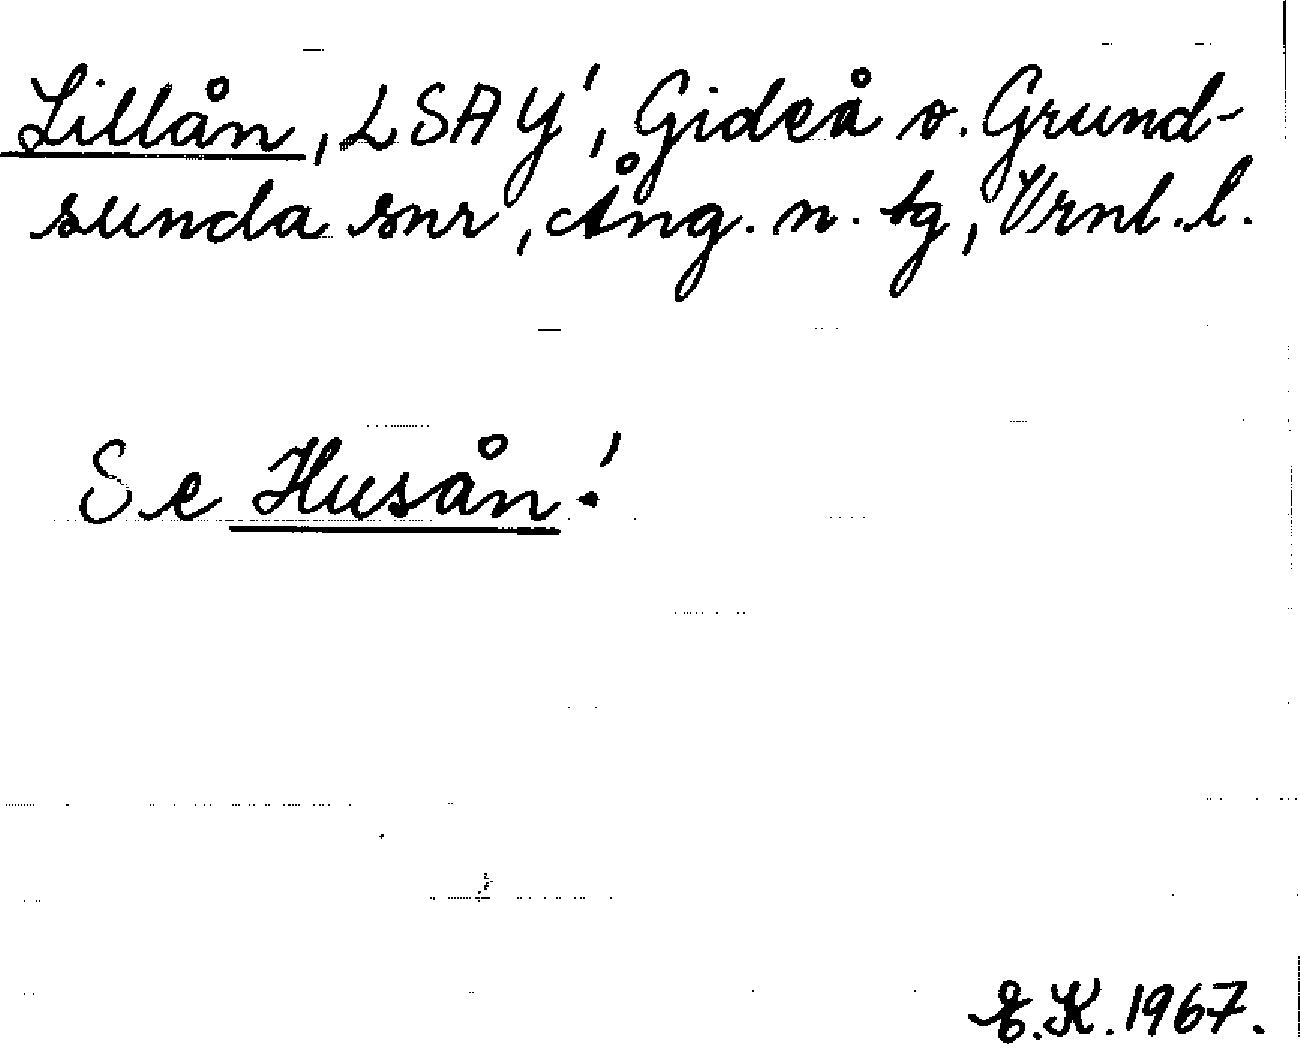 Lillån, LSA Y', Gideå o. Grund-
sunda snr, Ång. n. tg, Vrnl. l.
Se Husån!
E.K. 1967.